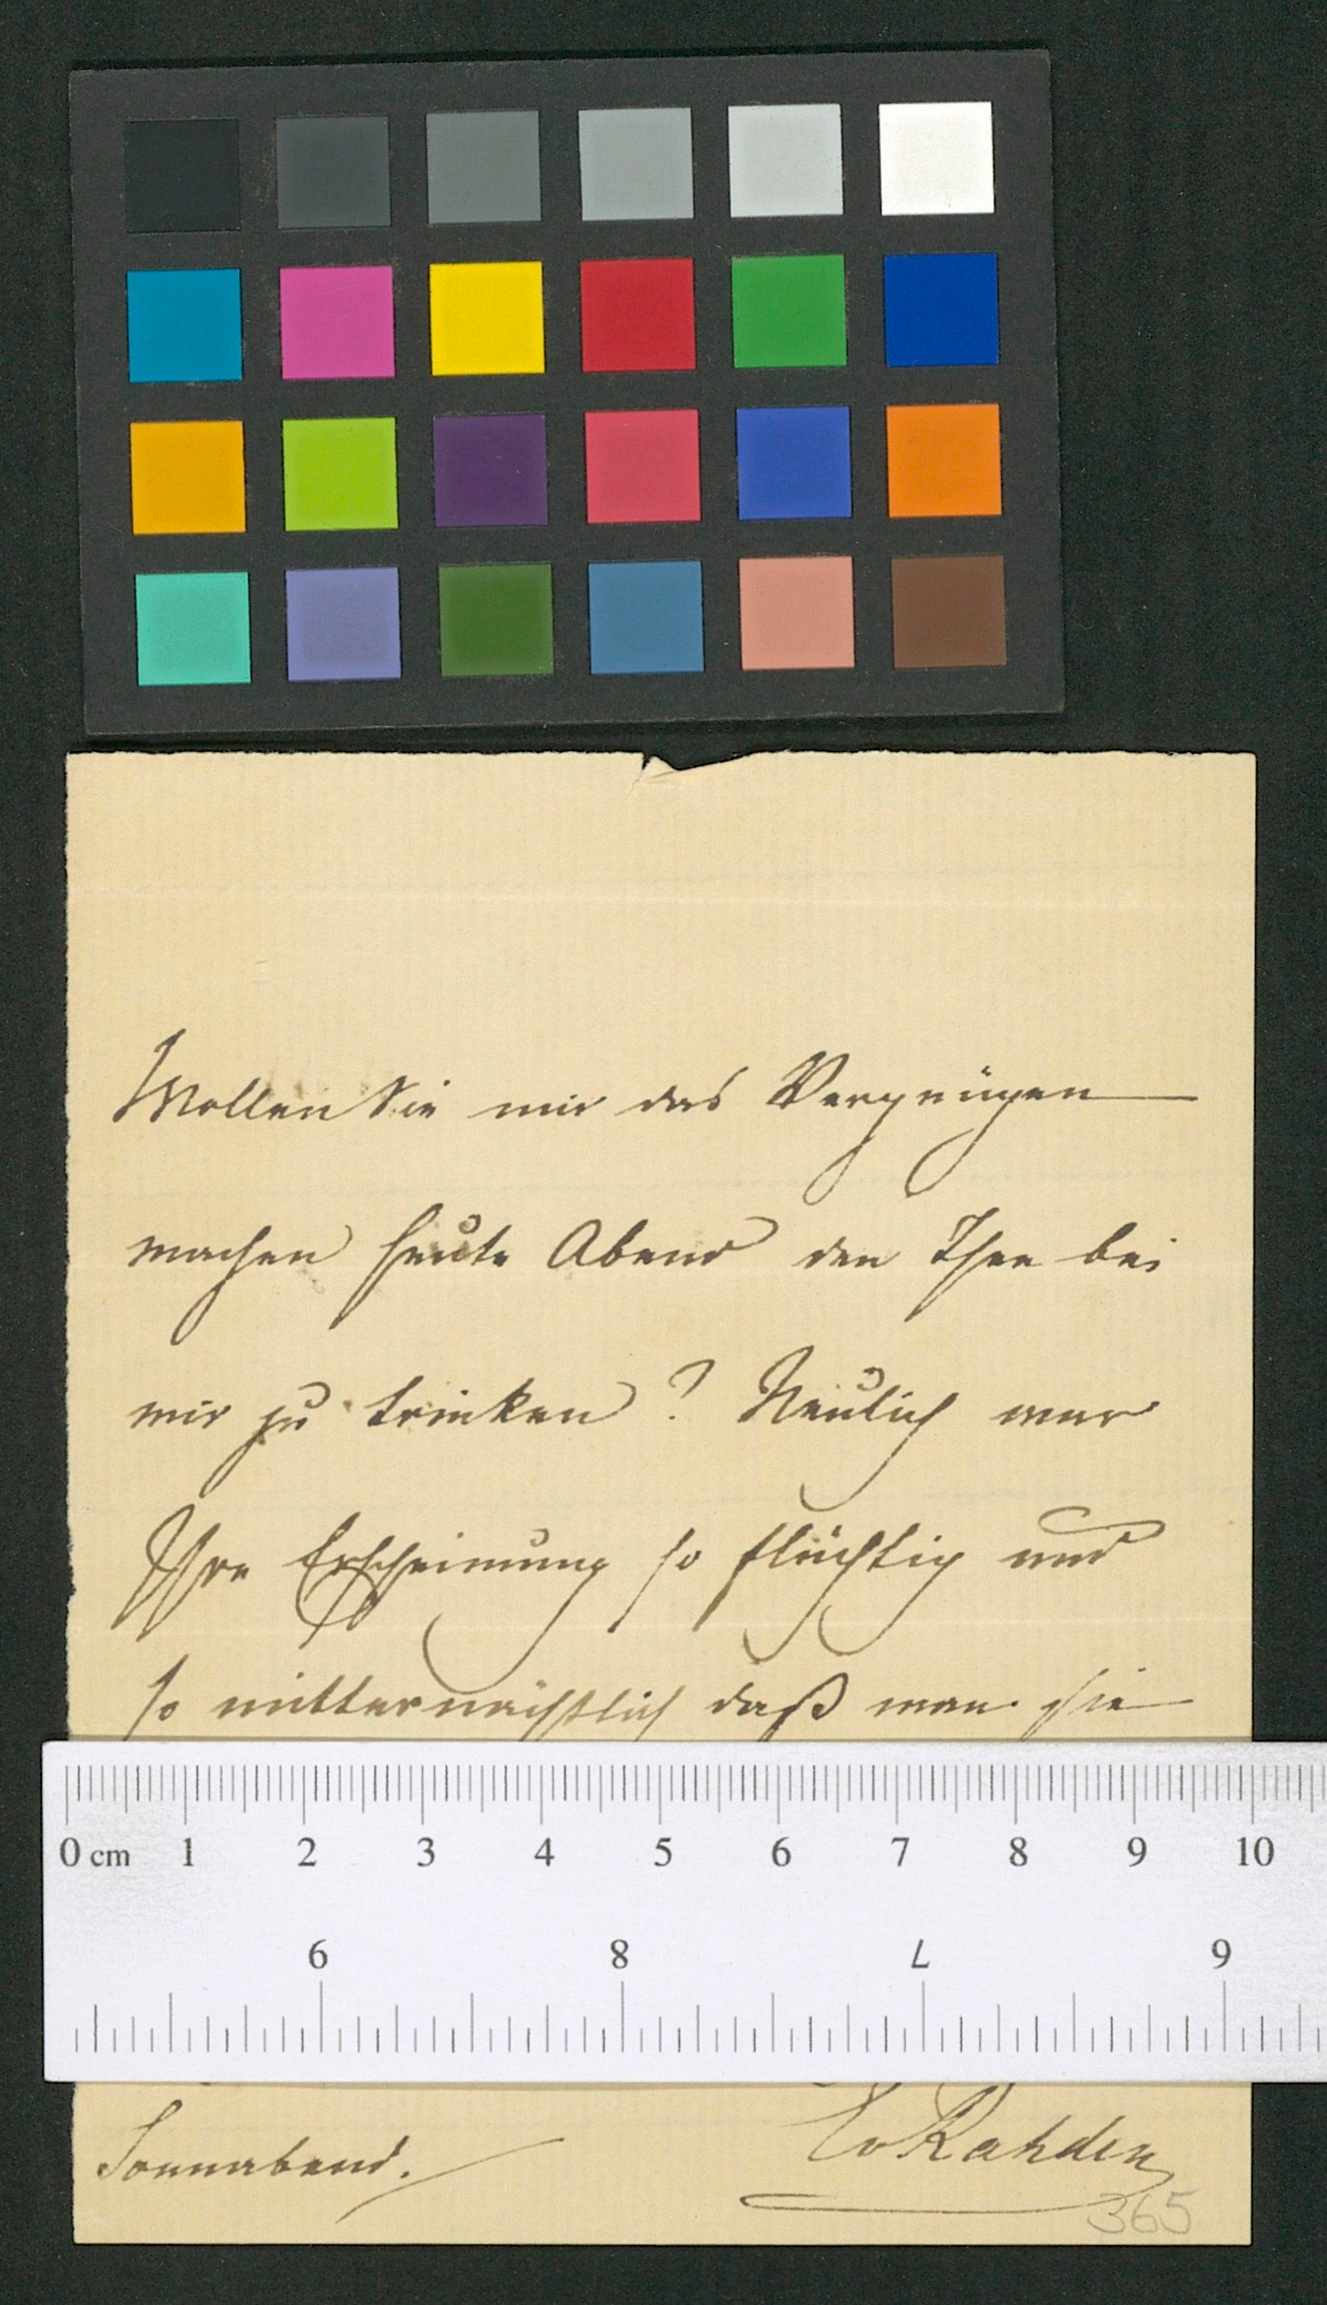 Wollen Sie mir das Vergnügen
machen heute Abend den Thee bei
mir zu trinken? Neulich war
Ihre Erscheinung so flüchtig und
so mitternächtlich daß man sie
0 cm 1 2 3 4 5 6 7 8 9 10
6 8 7 9
EvRahden
Sonnabend.
365